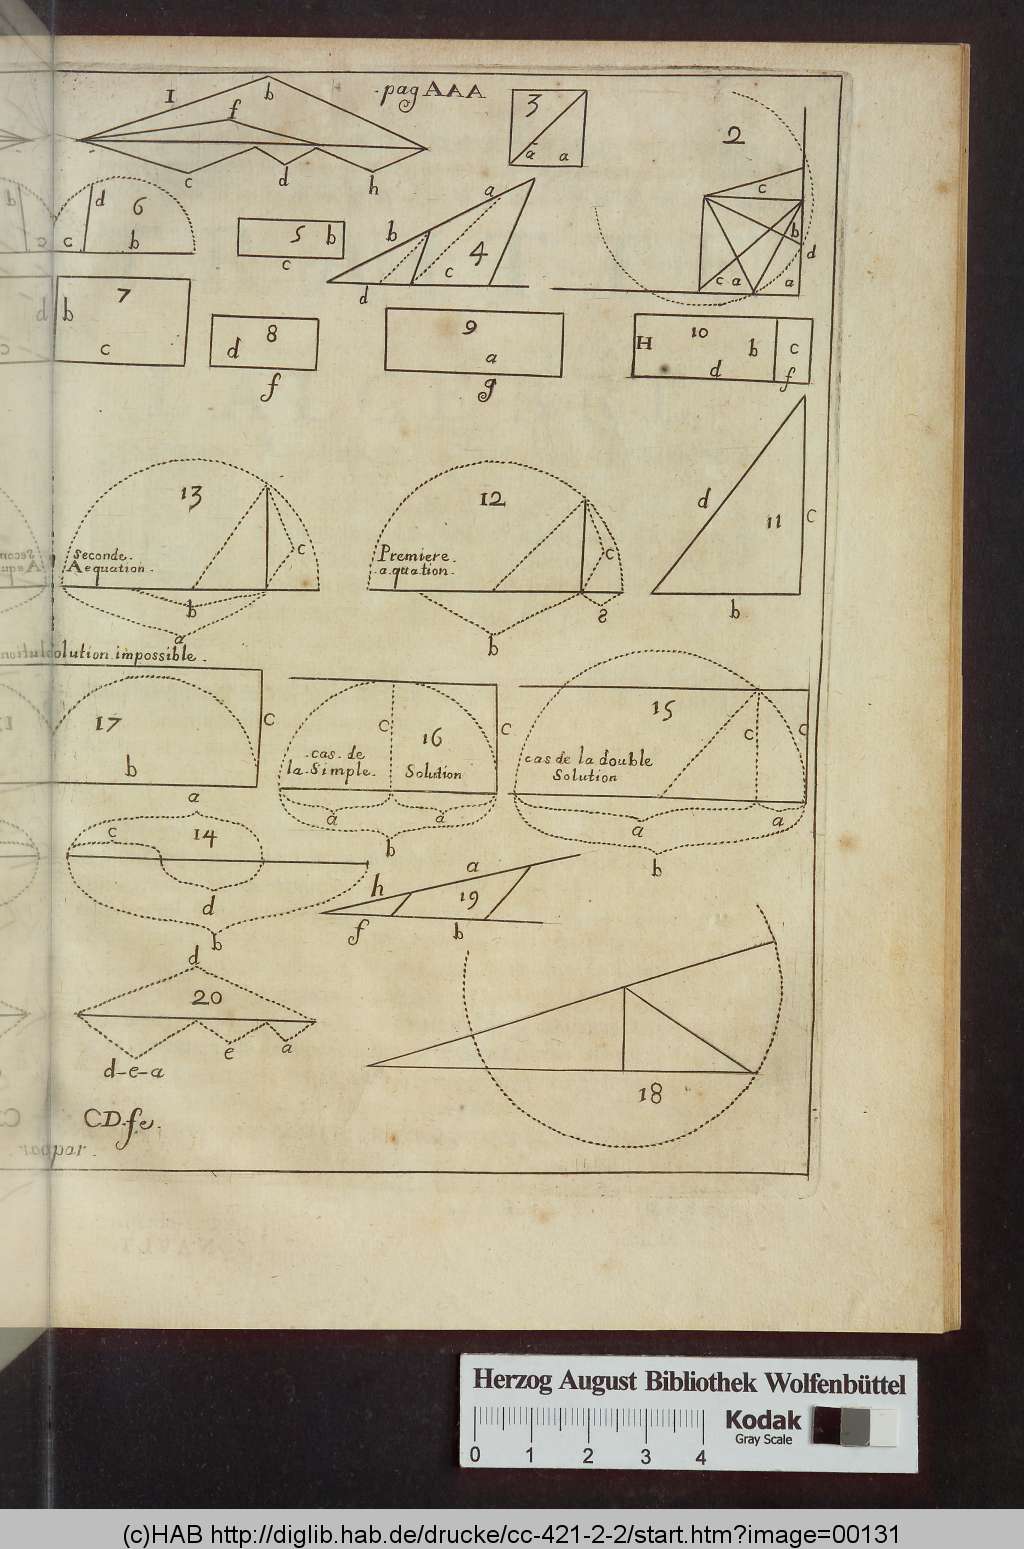 pag AAA
1
b
f
c
d
h
3
a
a
2
c
b
d
c a
a
6
d
c
b
5
b
c
4
a
b
c
d
7
b
c
8
d
f
9
a
g
10
H
b
c
d
f
13
Seconde.
Aequation.
c
b
a
12
Premiere.
aquation.
c
b
11
d
c
b
Solution impossible.
17
c
b
16
c
c
cas. de
la Simple. Solution
a
a
b
15
c
c
cas de la double
Solution
a
a
b
14
a
c
d
b
19
h
a
f
b
20
d
d-e-a
e
a
18
CD.fe.
par.
Herzog August Bibliothek Wolfenbüttel
Kodak
Gray Scale
0 1 2 3 4
(c)HAB http://diglib.hab.de/drucke/cc-421-2-2/start.htm?image=00131